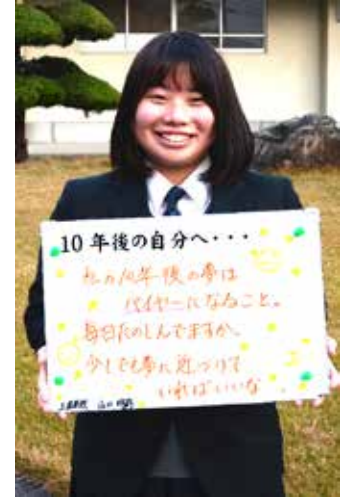 10年後の自分へ・・・
私の10年後の夢は
バイヤーになること。
毎日たのしんでますか。
少しでも夢に近づけて
いればいいな